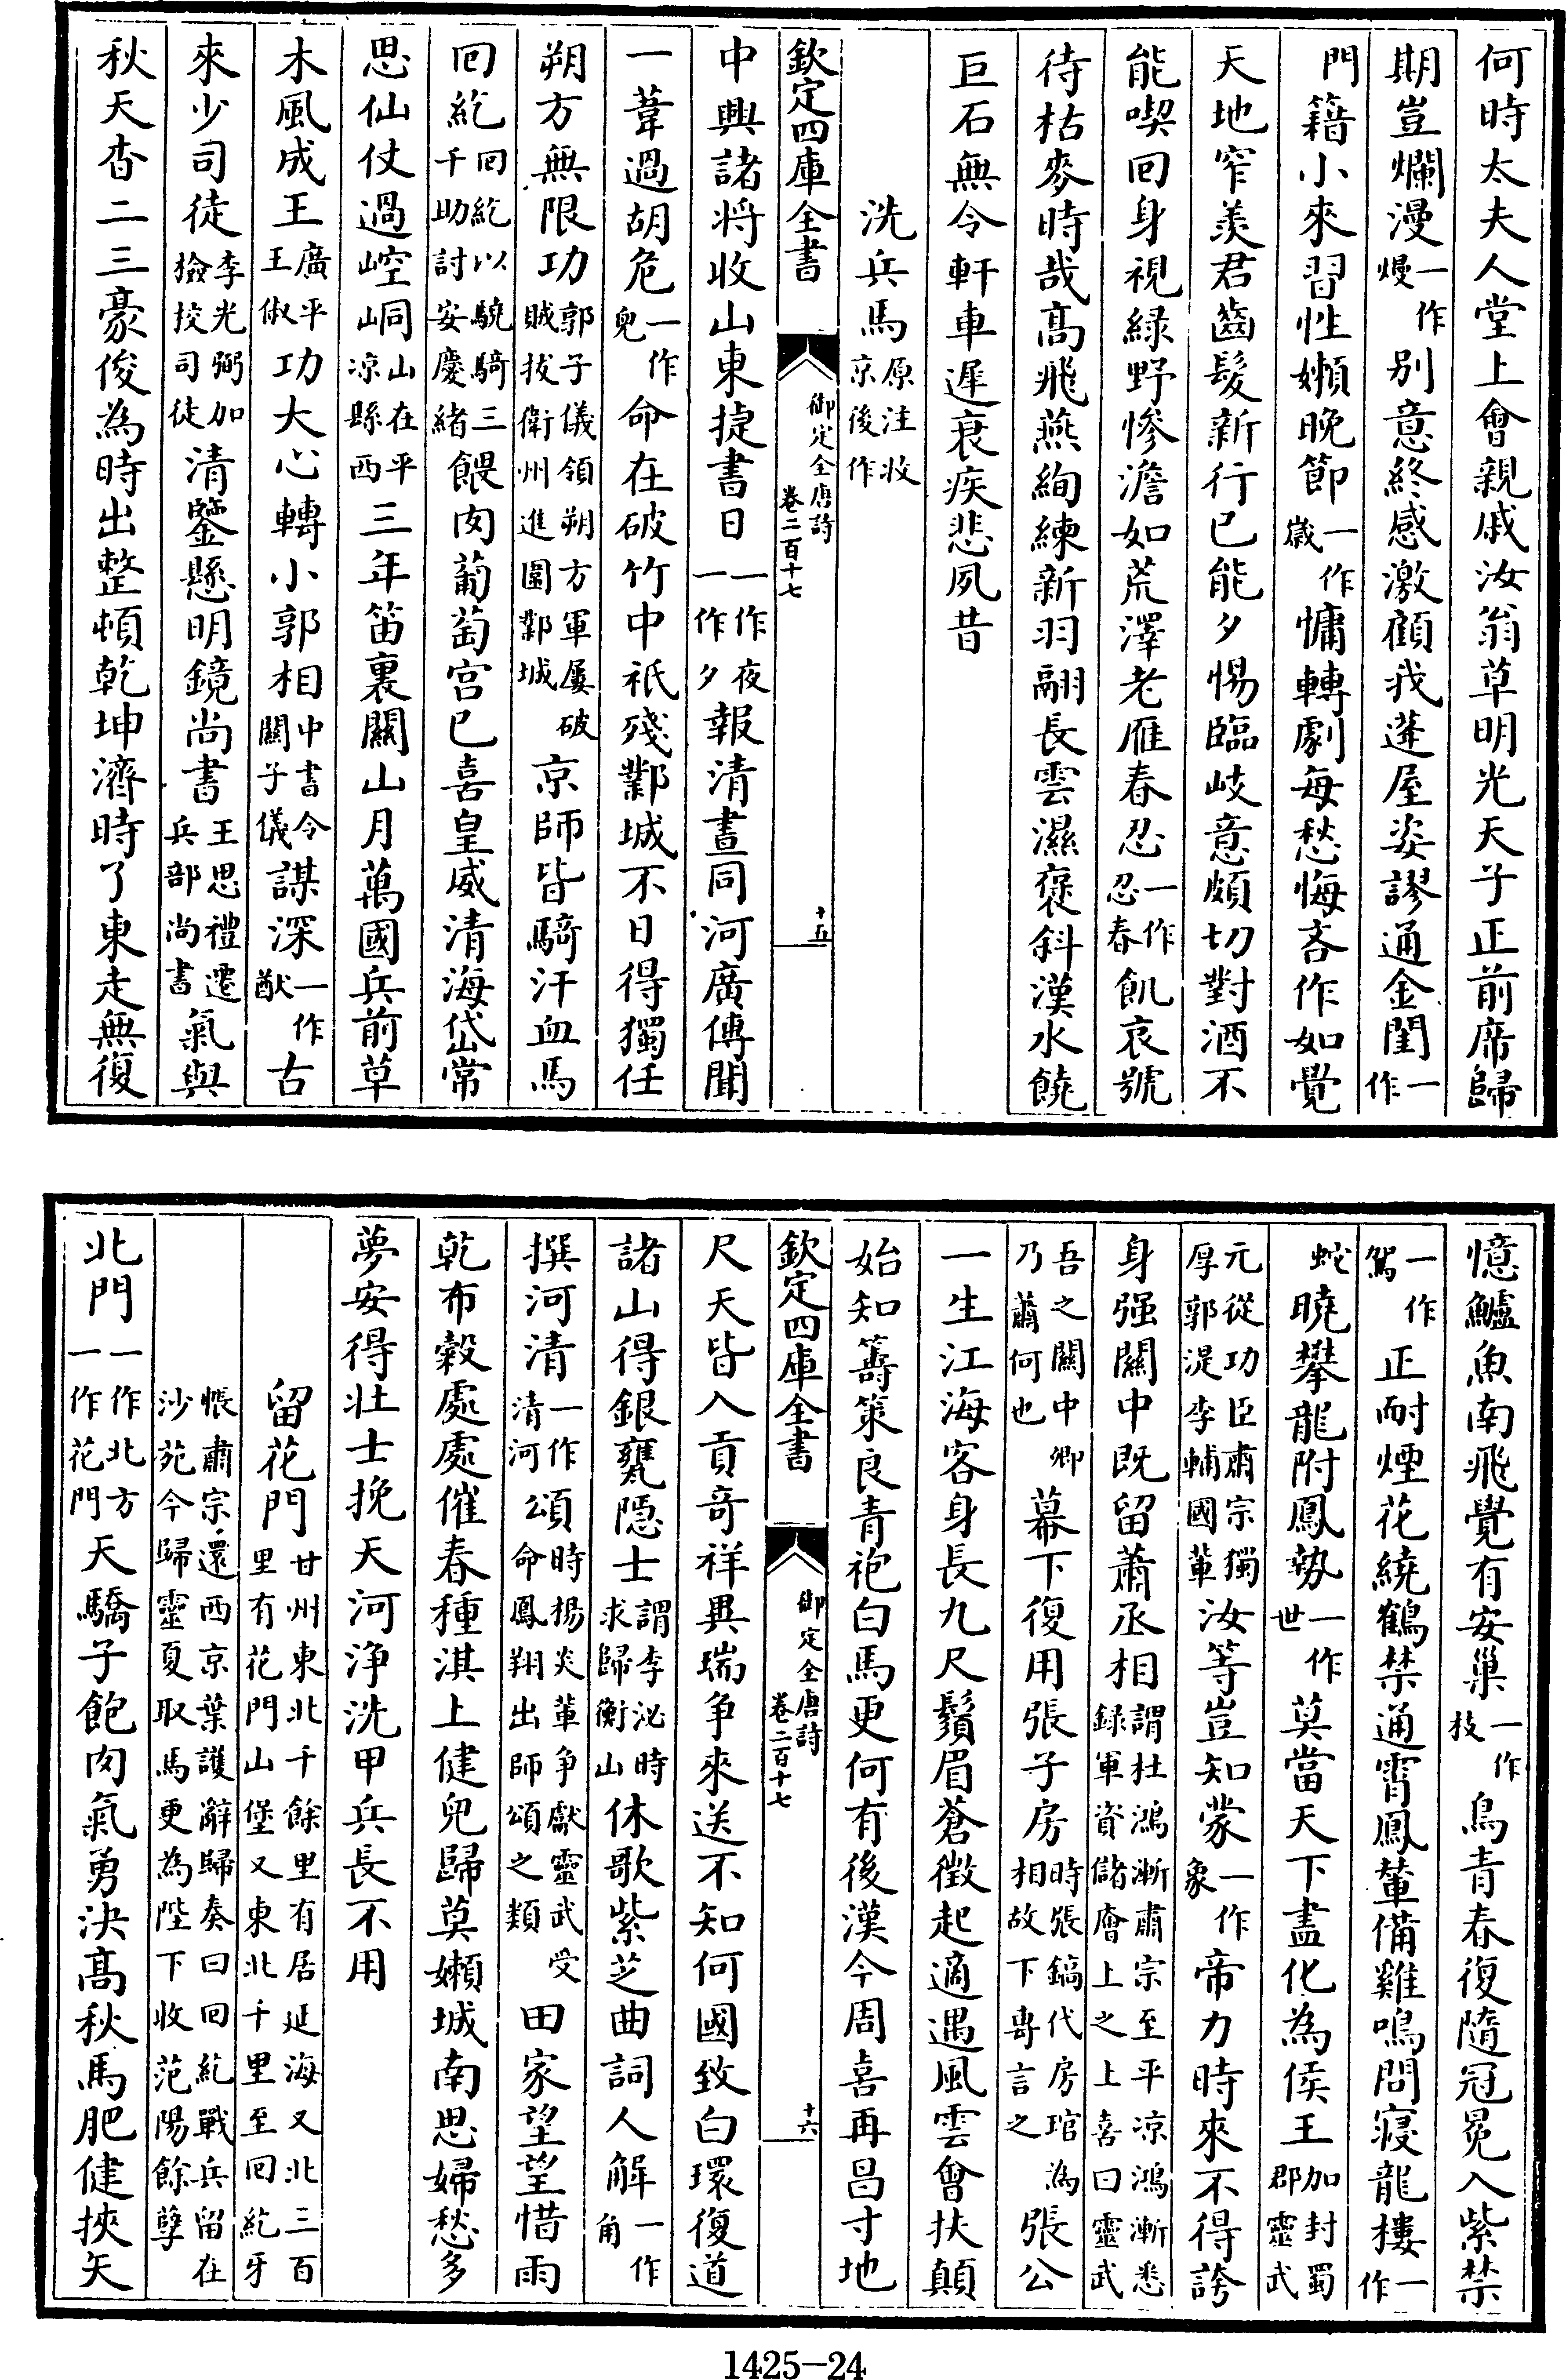 何時太夫人堂上會親戚汝翁草明光天子正前席歸
期豈爛漫一作熳别意終感激顧我蓬屋姿謬通金閨一作
門籍小來習性嬾晚節一作歲慵轉劇每愁悔吝作如覺
天地窄羨君齒髮新行已能夕惕臨岐意頗切對酒不
能喫回身視緑野慘澹如荒澤老雁春忍一作忍春飢哀號
待枯麥時哉高飛燕絢練新羽翮長雲濕褒斜漢水饒
巨石無令軒車遲衰疾悲夙昔
洗兵馬原注收京後作
欽定四庫全書
御定全唐詩
卷二百十七
十五
中興諸将收山東捷書日一作夜一作夕報清晝同河廣傳聞
一葦過胡危一作兒命在破竹中祇殘鄴城不日得獨任
朔方無限功郭子儀領朔方軍屢破賊拔衛州進圍鄴城京師皆騎汗血馬
回紇回紇以驍騎三千助討安慶緒餵肉葡萄宫已喜皇威清海岱常
思仙仗過崆峒山在平凉縣西三年笛裏關山月萬國兵前草
木風成王廣平王俶功大心轉小郭相中書令關子儀謀深一作猷古
來少司徒李光弼加撿挍司徒清鑒懸明鏡尚書王思禮遷兵部尚書氣與
秋天杳二三豪俊為時出整頓乾坤濟時了東走無復
憶鱸魚南飛覺有安巢一作枝鳥青春復隨冠冕入紫禁
一作駕正耐煙花繞鶴禁通霄鳳輦備雞鳴問寢龍樓一作
蛇曉攀龍附鳳勢一作世莫當天下盡化為侯王加封蜀郡靈武
元從功臣肅宗獨厚郭湜李輔國輩汝等豈知蒙一作象帝力時來不得誇
身强關中既留蕭丞相謂杜鴻漸肅宗至平凉鴻漸悉録軍資儲廥上之上喜曰靈武
吾之關中卿乃蕭何也幕下復用張子房時張鎬代房琯為相故下專言之張公
一生江海客身長九尺鬚眉蒼徴起適遇風雲會扶顛
始知籌策良青袍白馬更何有後漢今周喜再昌寸地
欽定四庫全書
御定全唐詩
卷二百十七
十六
尺天皆入貢奇祥異瑞争來送不知何國致白環復道
諸山得銀甕隠士謂李泌時求歸衡山休歌紫芝曲詞人解一作角
撰河清一作清河頌時楊炎輩争獻靈武受命鳳翔出師頌之類田家望望惜雨
乾布穀處處催春種淇上健兒歸莫嬾城南思婦愁多
夢安得壯士挽天河浄洗甲兵長不用
留花門甘州東北千餘里有居延海又北三百里有花門山堡又東北千里至回紇牙
帳肅宗還西京葉護辭歸奏曰回紇戰兵留在沙苑今歸靈夏取馬更為陛下收范陽餘孽
北門一作北方一作花門天驕子飽肉氣勇決高秋馬肥健挾矢
1425—24